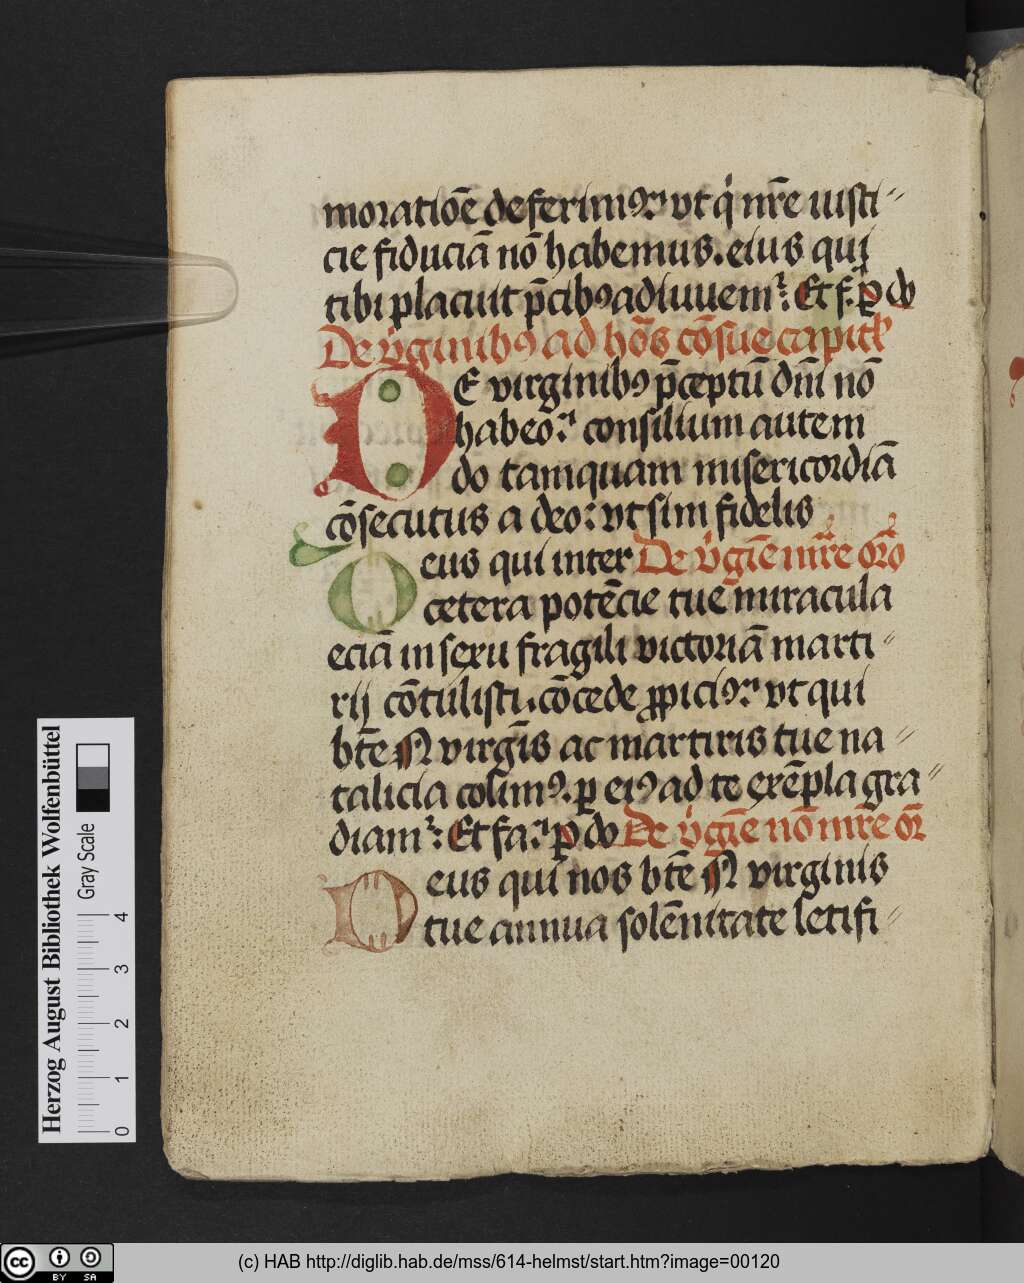 moratiōe deferimꝰ: vt q̇ nr̄e iusti〃
cie fiduciā nō habemus. eius qui
tibi placuit p̄cibꝰ adiuuem᷑: Et f. ꝑ do
De v̇ginibꝰ ad ho᷑s cōsue capitl̕
DE virginibꝰ p̄ceptū dn̄i nō
habeo: consilium autem
do tamquam misericordiā
cōsecutus a deo: vt sim fidelis
Deus qui inter De v̇gīe mr̄e oro
cetera potēcie tue miracula
eciā in sexu fragili victoriā marti〃
rij cōtulisti. cōcede ꝓpiciꝰ: vt qui
bt̄e N virgīs ac martiris tue na〃
talicia colimꝰ. ꝑ eiꝰ ad te exēpla gra〃
diam᷑: Et fa: ꝑ do De v̇gīe nō mr̄e or̄
Deus qui nos bt̄e N virginis
tue annua solēnitate letifi〃
Herzog August Bibliothek Wolfenbüttel
Gray Scale
0 1 2 3 4
cc BY SA
(c) HAB http://diglib.hab.de/mss/614-helmst/start.htm?image=00120